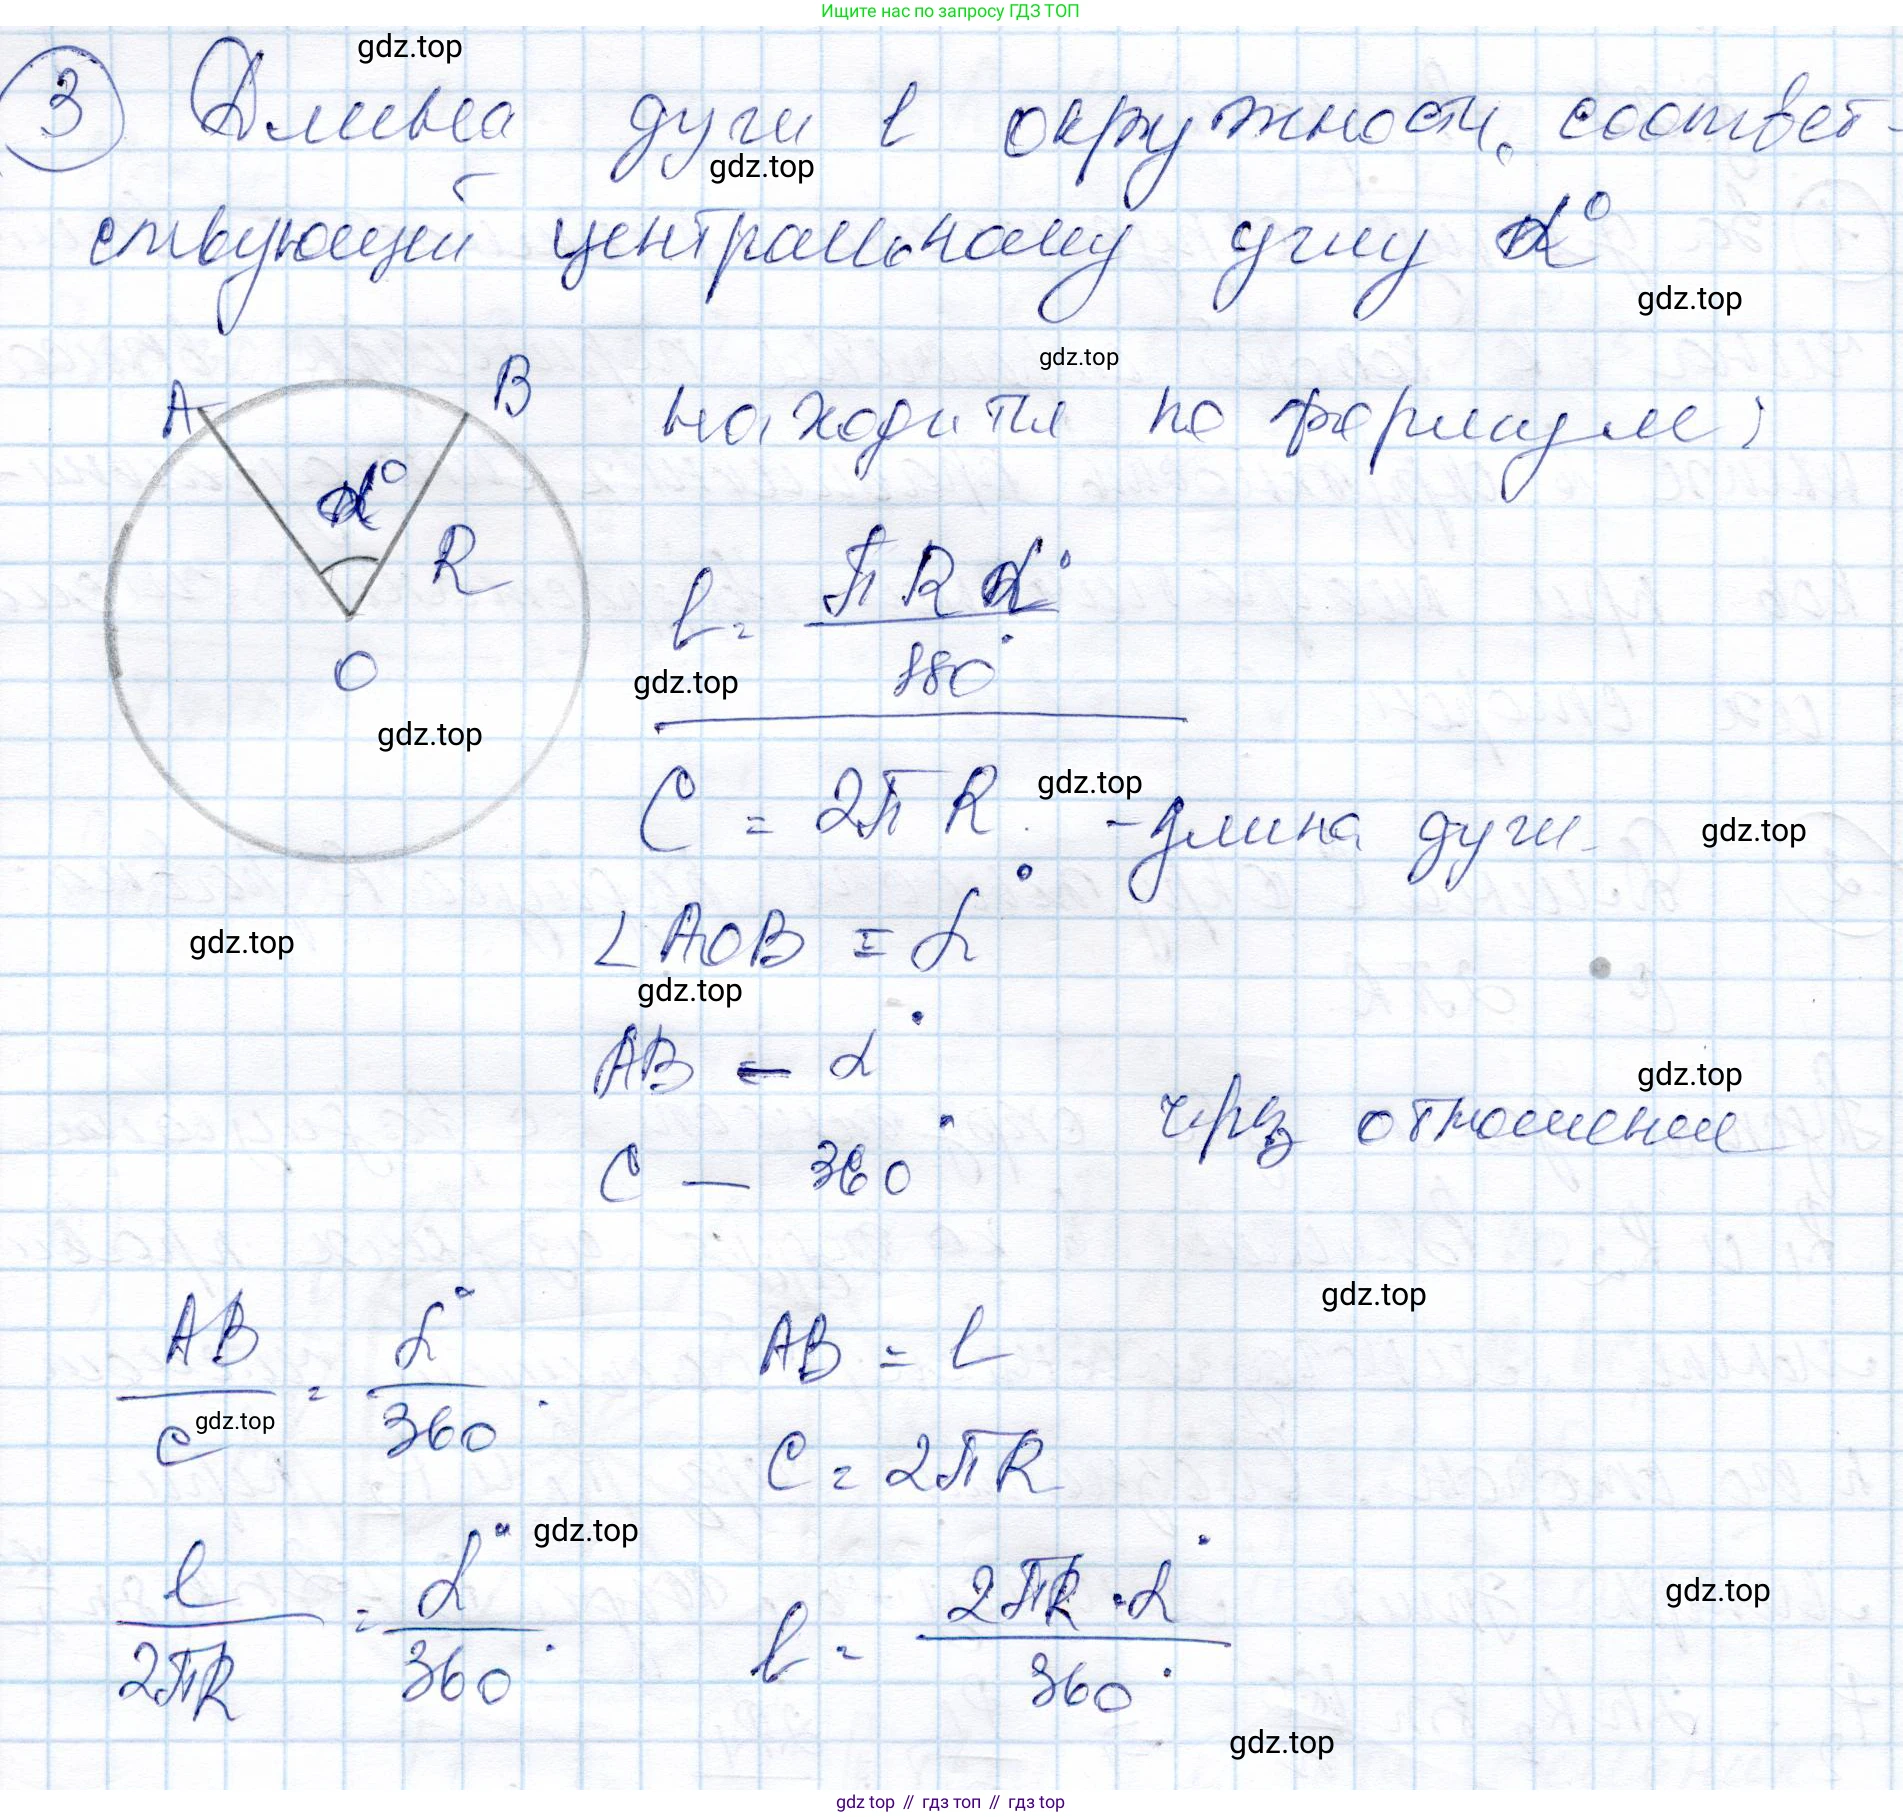 Ищите нас по запросу ГДЗ ТОП
gdz.top
3 Длина дуги l окружности, соответ-
gdz.top
ствующей центральному углу α°
gdz.top
gdz.top
A B находится по формуле:
α°
R
l = πRα° / 180°
O
gdz.top
gdz.top
C = 2πR - длина дуги.
gdz.top
gdz.top
∠AOB = α°
gdz.top
gdz.top
AB — α°
gdz.top
через отношение
C — 360°
gdz.top
AB / C = α° / 360° AB = l
gdz.top
C = 2πR
gdz.top
l / 2πR = α° / 360° l = 2πR · α° / 360°
gdz.top
gdz.top
gdz top // гдз топ // гдз top